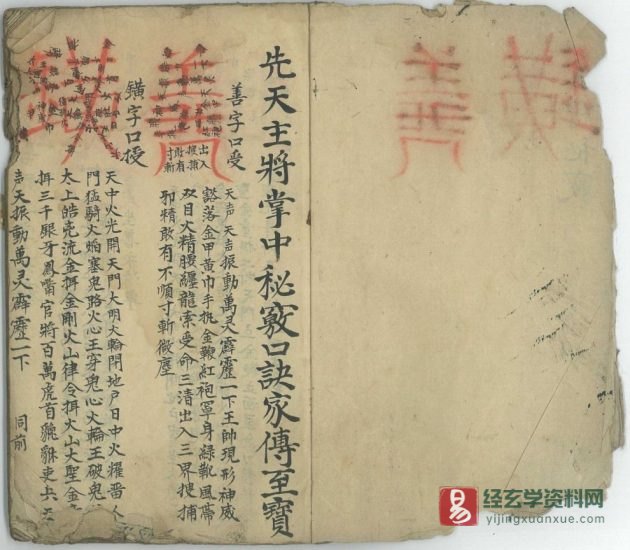 先天主將掌中秘竅口訣家傳至寶
善字口受
天声天声振動萬灵霹靂一下王帥現形神威
豁落金甲黄巾手执金鞭紅袍罩身緑靴風帶
双目火精腰纏龍索受命三清出入三界搜捕
邪精敢有不順寸斬微塵
字口授
天中火光開天門大明大輪閉地户日中火耀人
門猛騎火焰塞鬼路火心王穿鬼心火輪王破鬼
太上皓流金金剛火山律令火山大聖金
三千牙鳳嘴官將百萬虎首
声天振動萬灵霹靂一下 同前
善
易 经玄学资料网
yijingxuanxue.com